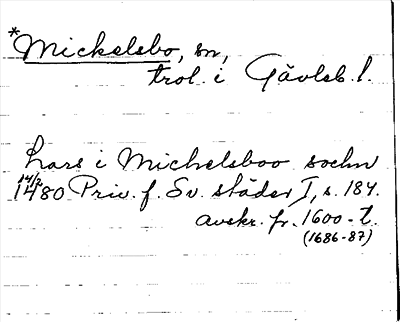 *Mickelsbo, sn,
trol. i Gävleb. l.
Lars i Michelsboo sochn
14/2 1480 Priv. f. Sv. städer I, s. 184.
avskr. fr. 1600-t.
(1686-87)